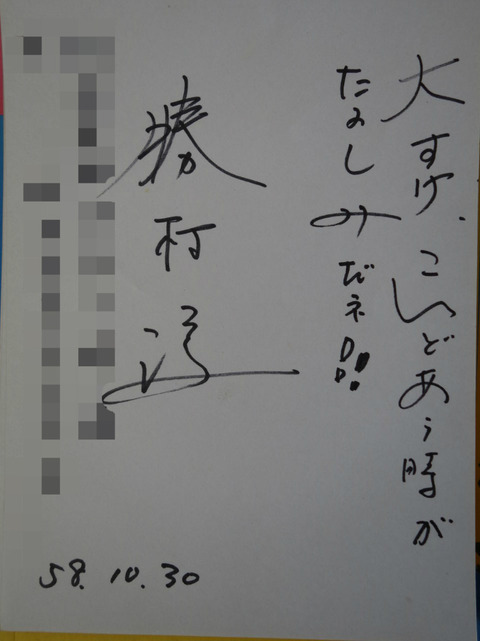 大すけ、こんどあう時が
たのしみだネ!!
勝村
58.10.30